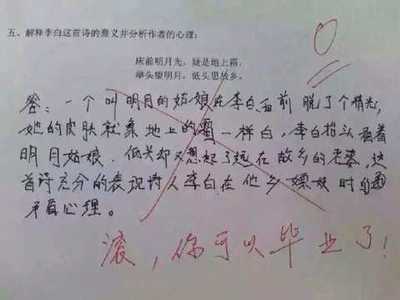 五、解释李白这首诗的意义并分析作者的心理:
床前明月光,疑是地上霜。
举头望明月,低头思故乡。
答:一个叫明月的姑娘在李白面前脱了个精光,
她的皮肤就象地上的霜一样白,李白抬头看着
明月姑娘,低头却又想起了远在故乡的老婆,这
首诗充分的表现诗人李白在他乡嫖妓时的
矛盾心理。
0
滚,你可以毕业了!